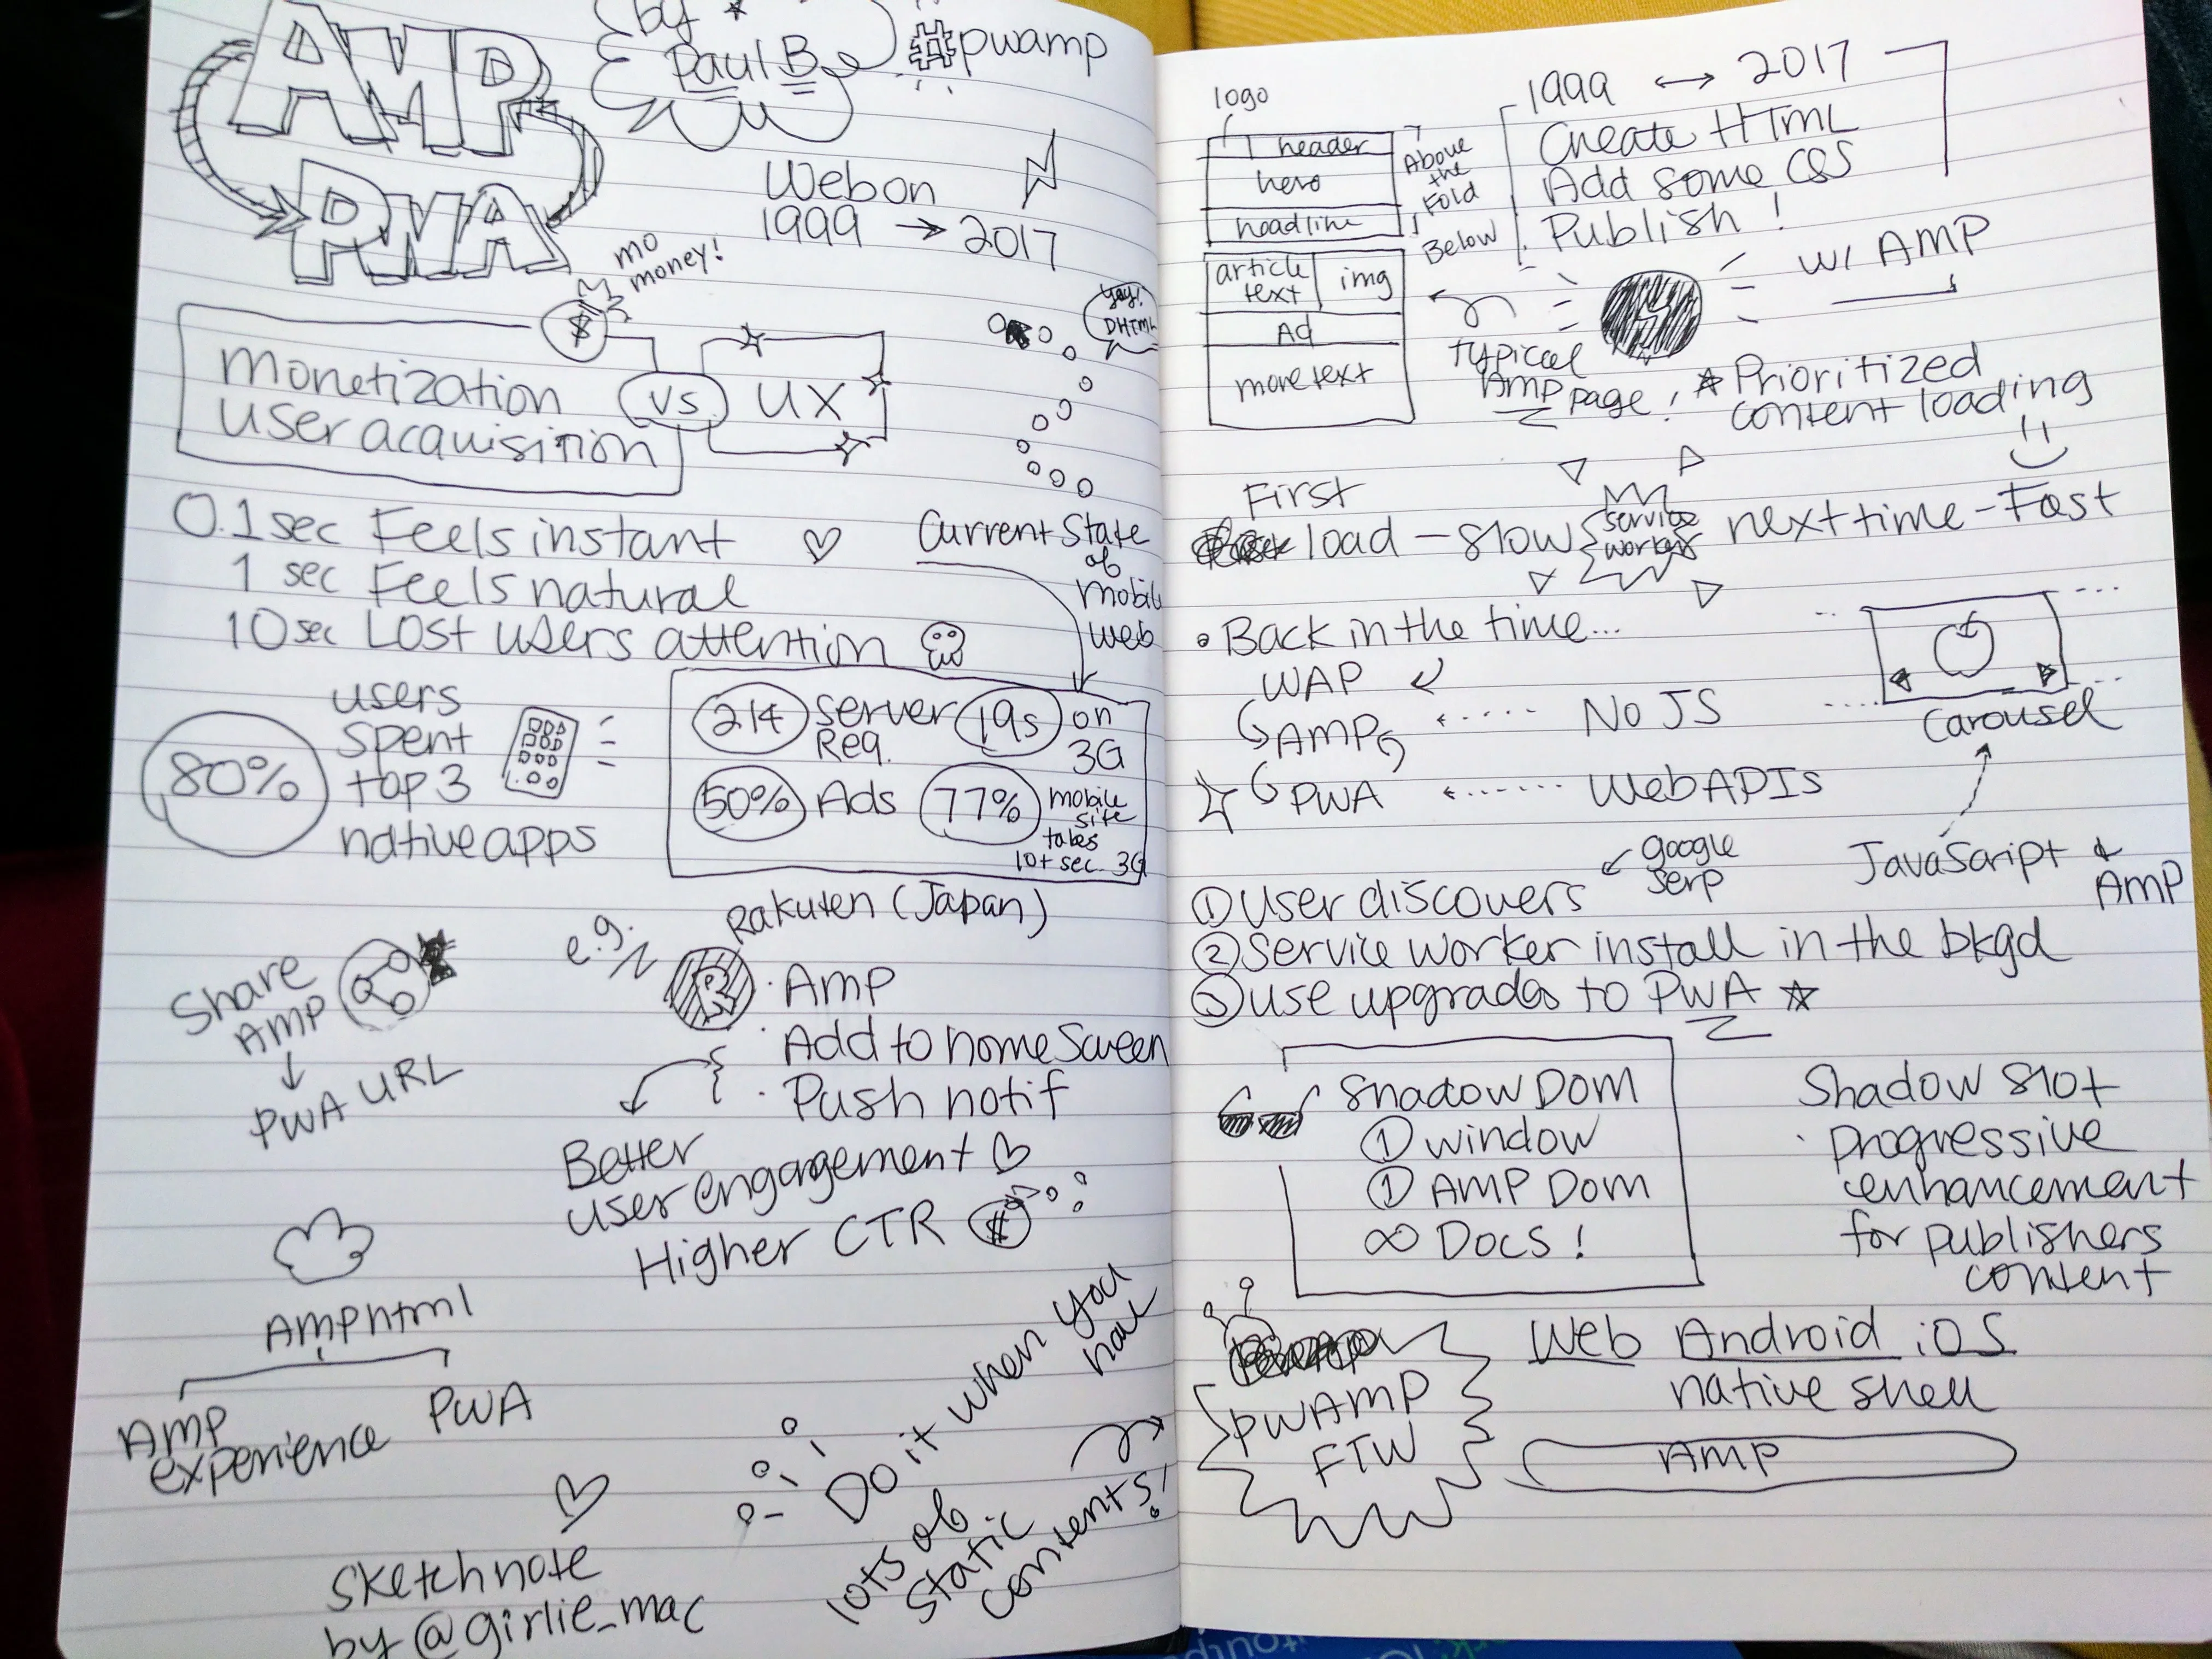 AMP
PWA
by
Paul B
#pwamp
Web on
1999 → 2017
mo
money!
$
monetization
user acquisition
vs
UX
yay!
DHTML
0.1 sec Feels instant
1 sec Feels natural
10 sec Lost users attention
Current State
of
mobile
web
80%
users
spent
top 3
native apps
214 Server
Req.
19s on
3G
50% Ads
77% mobile
site
takes
10+ sec 3G
Share
AMP
↓
PWA URL
e.g.
Rakuten (Japan)
R
· Amp
· Add to home Screen
· Push notif
Better
user engagement
Higher CTR $
Amphtml
Amp
experience
PWA
Do it when you
have
lots of
static
contents!
Sketchnote
by @girlie_mac
logo
header
hero
headline
Above
the
Fold
Below
article
text
img
Ad
more text
typical
Amp page!
1999 ↔ 2017
Create HTML
Add some CSS
Publish!
w/ AMP
★ Prioritized
content loading
First
load – slow
service
worker
next time – Fast
• Back in the time...
WAP
AMP
PWA
No JS
Web APIs
Carousel
JavaScript &
AMP
① User discovers
google
serp
② Service worker install in the bkgd
③ use upgrades to PWA ☆
Shadow Dom
① window
① AMP Dom
∞ Docs!
Shadow slot
· progressive
enhancement
for publishers
content
PWAMP
FTW
Web Android iOS
native shell
Amp